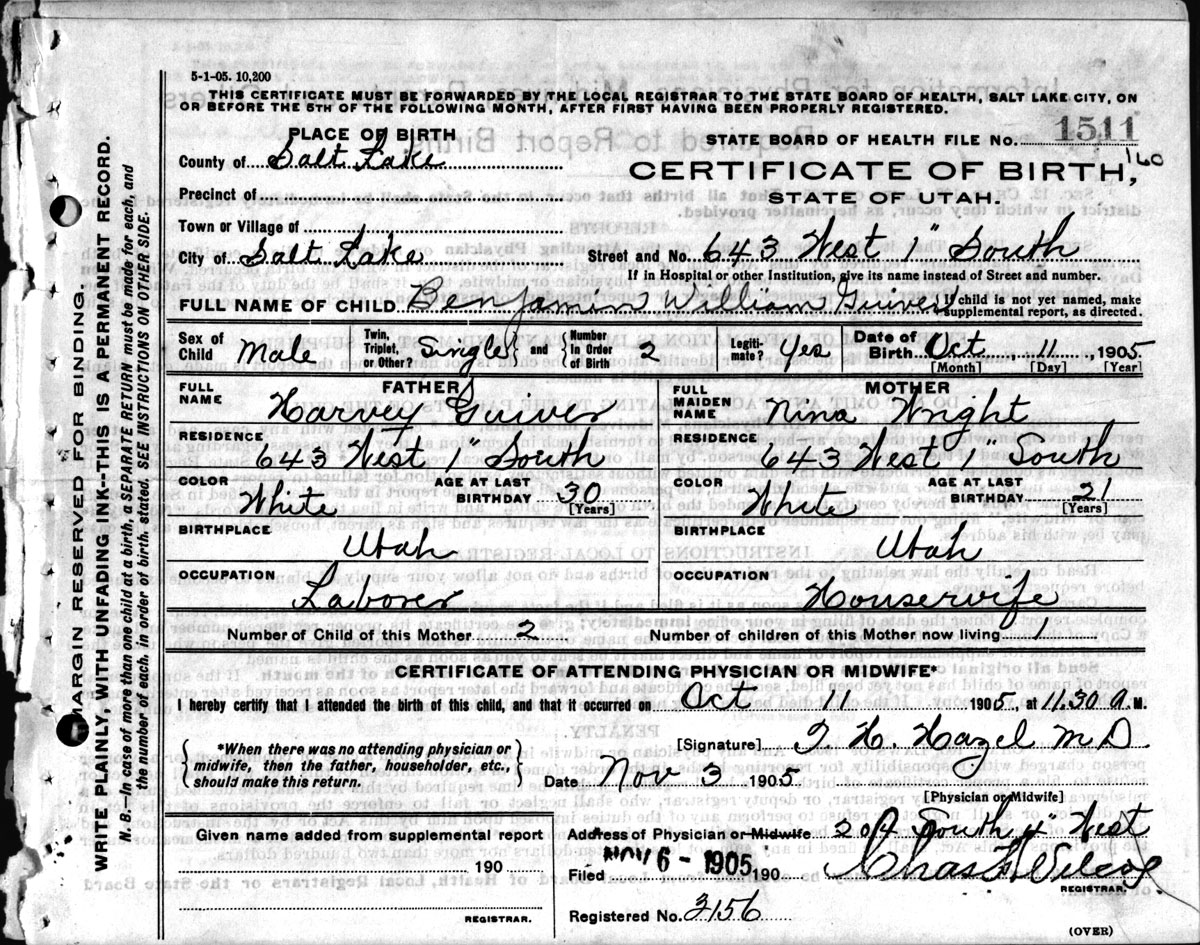 5-1-05. 10,200
THIS CERTIFICATE MUST BE FORWARDED BY THE LOCAL REGISTRAR TO THE STATE BOARD OF HEALTH, SALT LAKE CITY, ON
OR BEFORE THE 5TH OF THE FOLLOWING MONTH, AFTER FIRST HAVING BEEN PROPERLY REGISTERED.
PLACE OF BIRTH
STATE BOARD OF HEALTH FILE NO. 1511
County of Salt Lake
160
CERTIFICATE OF BIRTH,
Precinct of
STATE OF UTAH.
Town or Village of
City of Salt Lake Street and No. 643 West 1" South
If in Hospital or other Institution, give its name instead of Street and number.
FULL NAME OF CHILD Benjamin William Guiver
If child is not yet named, make
supplemental report, as directed.
Sex of Child Male Twin, Triplet, or Other? Single and Number in Order of Birth 2 Legiti-mate? Yes Date of Birth Oct 11, 1905
[Month] [Day] [Year]
FATHER
FULL NAME Harvey Guiver
RESIDENCE
643 West 1" South
COLOR White AGE AT LAST BIRTHDAY 30
[Years]
BIRTHPLACE
Utah
OCCUPATION
Laborer
MOTHER
FULL MAIDEN NAME Nina Wright
RESIDENCE
643 West 1" South
COLOR White AGE AT LAST BIRTHDAY 21
[Years]
BIRTHPLACE
Utah
OCCUPATION
Housewife
Number of Child of this Mother 2 Number of children of this Mother now living 1
CERTIFICATE OF ATTENDING PHYSICIAN OR MIDWIFE*
I hereby certify that I attended the birth of this child, and that it occurred on Oct 11 1905, at 11.30 A. M.
*When there was no attending physician or
midwife, then the father, householder, etc.,
should make this return.
[Signature] H. Hazel M D
Date Nov 3 1905
[Physician or Midwife]
Given name added from supplemental report
190
REGISTRAR.
Address of Physician or Midwife. South West
Filed 6 - 1905 190
Chas F. Wilcox
REGISTRAR.
Registered No. 2156
(OVER)
MARGIN RESERVED FOR BINDING.
WRITE PLAINLY, WITH UNFADING INK--THIS IS A PERMANENT RECORD.
N. B.--In case of more than one child at a birth, a SEPARATE RETURN must be made for each, and
the number of each, in order of birth, stated. SEE INSTRUCTIONS ON OTHER SIDE.